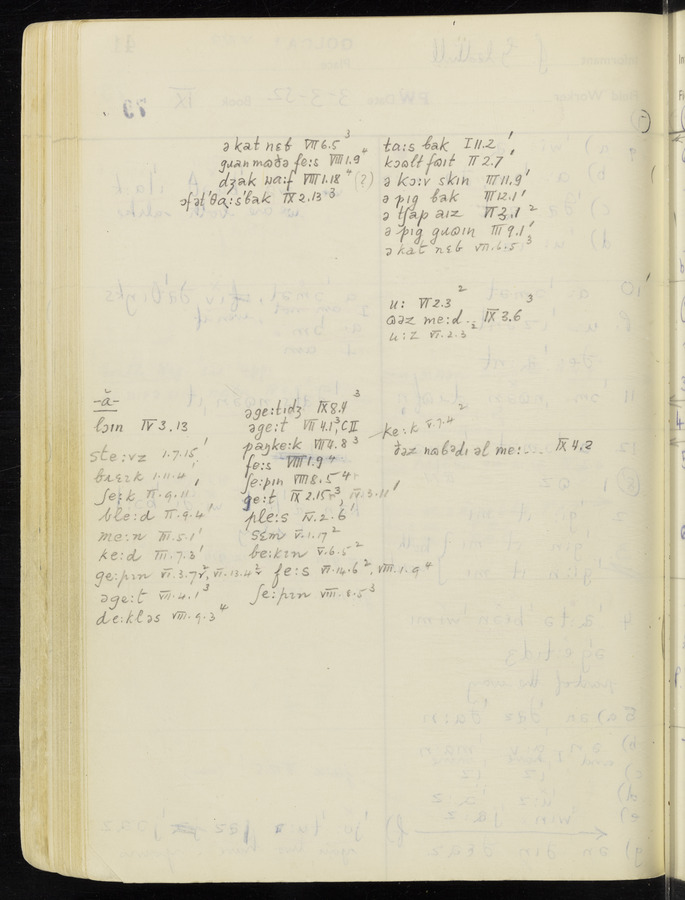 ə kat nɛb VII 6.5 ³
guan mɑðə fe:s VIII 1.9 ⁴
dʒak na:f VIII 1.18 ⁴ (?)
əfət 'θa:s'bak IX 2.13 ³
ta:s bak I 11.2 ¹
kɔɑlt fɑɪt II 2.7 ¹
ə kɔ:v skɪn III 11.9 ¹
ə pɪg bak III 12.1 ¹
ə tʃap aɪz VI 3.1 ²
ə pɪg guɑɪn III 9.1 ¹
ə kat nɛb VII.6.5 ³
u: VI 2.3 ²
ɑəz me:d ... IX 3.6 ³
u:z VI.2.3 ²
-ă-
lɔɪn IV 3.13
ste:vz I.7.15 ¹
I.11.4 ¹
II.9.11 ¹
ble:d II.9.4 ¹
me:n III.5.1 ¹
ke:d III.7.3 ¹
ge:pɪn VI.3.7 ², VI.13.4 ²
əge:t VII.4.1 ³
de:kləs VIII.9.3 ⁴
əge:tɪdʒ IX 8.4 ³
əge:t VII 4.1 ³, C II
paŋke:k VII 4.8 ³
fe:s VIII 1.9 ⁴
ʃe:pɪn VIII 8.5 ⁴
ge:t IX 2.15 ³, IV.3.11 ¹
ple:s IV.2.6 ¹
sɛm V.1.17 ²
be:kɪn V.6.5 ²
fe:s VI.14.6 ², VIII.1.9 ⁴
ʃe:pɪn VIII.8.5 ³
ke:k V.7.4 ²
ðəz nɑbədɪ əl me:... IX 4.2